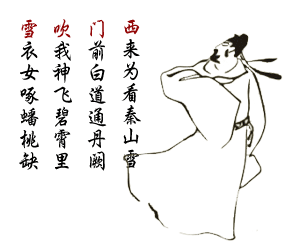 西来为看秦山雪
门前白道通丹阙
吹我神飞碧霄里
雪衣女啄蟠桃缺